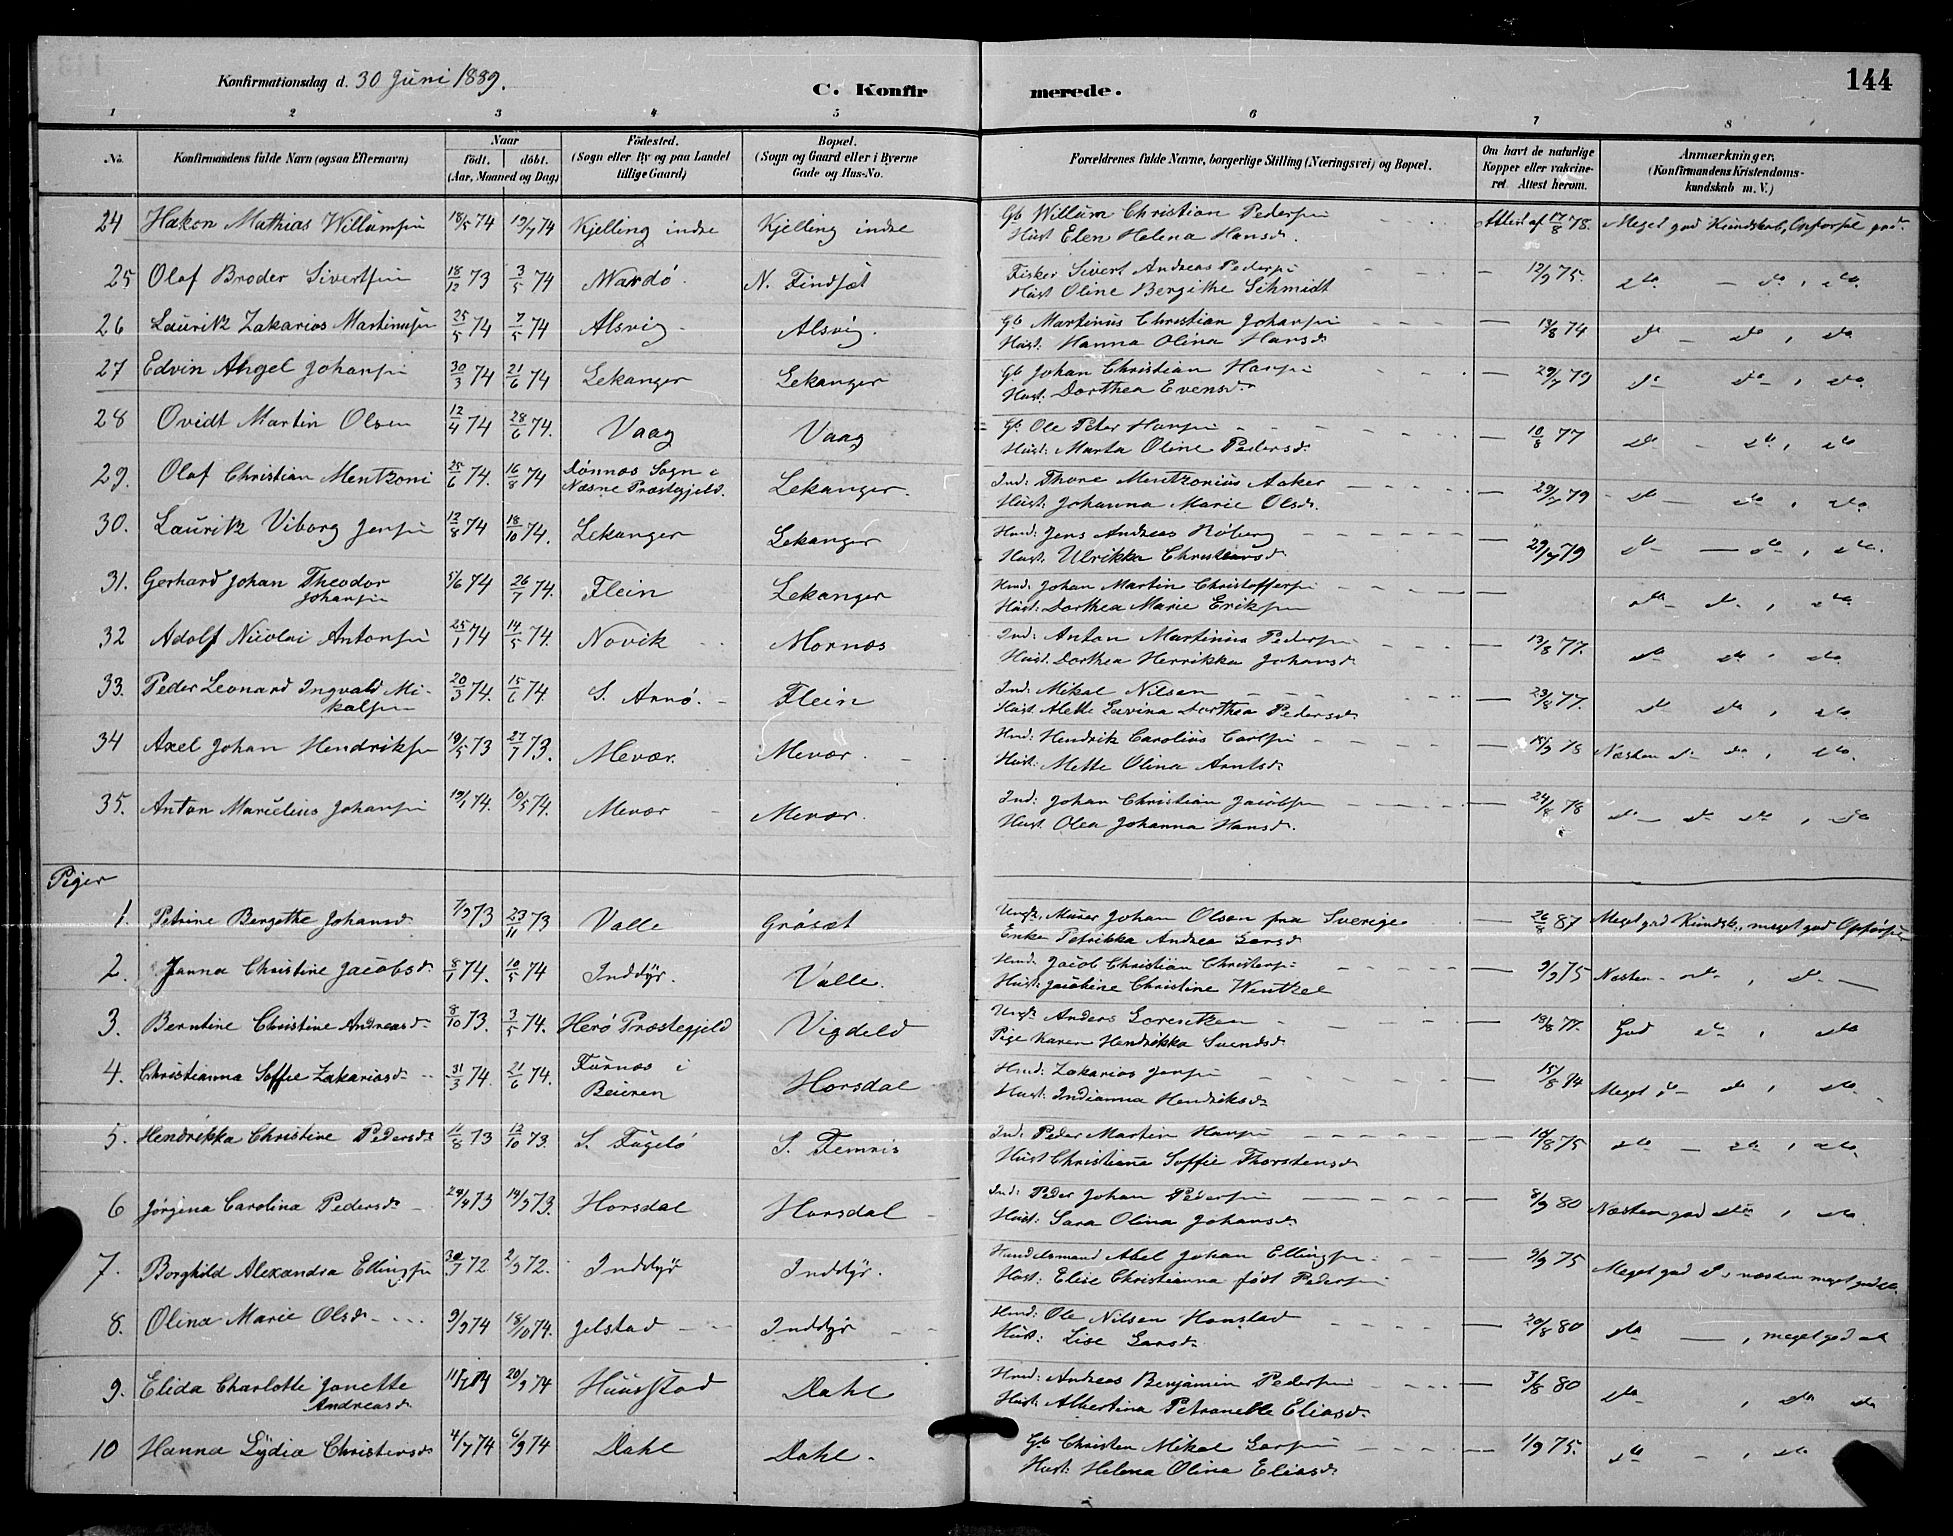 Konfirmationsdag d. 30 Juni 1889.
C. Konfirmerede.
144
1 2 3 4 5 6 7 8
No. | Konfirmandens fulde Navn (ogsaa Efternavn) | Naar født. døbt. (Aar, Maaned og Dag) | Fødested. (Sogn eller By og paa Landet tillige Gaard) | Bopæl. (Sogn og Gaard eller i Byerne Gade og Hus-No. | Forældrenes fulde Navne, borgerlige Stilling (Næringsvei) og Bopæl. | Om havt de naturlige Kopper eller vakcineret. Attest herom. | Anmærkninger. (Konfirmandens Kristendomskundskab m. V.)
24 Hakon Mathias Willumsen 18/5 74 19/7 74 Kjelling indre Kjelling indre Gb. Willum Christian Pedersen Hust. Elen Helena Hansd. Attest af 17/8 78. Meget god Kundskab, Opførsel god
25 Olaf Broder Sivertsen 18/12 73 3/5 74 Vardö N. Findset Fisker Sivert Andreas Pedersen Hust Oline Bergithe Schmidt — 12/9 75. do — do, do
26 Lauritz Zakarias Martinusen 25/5 74 7/5 74 Alsvig Alsvig. Gb Martinus Christian Johansen Hust: Hanna Olina Hansd — 19/8 74 do — do, do
27 Edvin Angel Johansen 30/3 74 21/6 74 Lekanger Lekanger Gb. Johan Christian Hansen Hust: Dorthea Evensd. — 29/7 79 do do, do
28 Ovidt Martin Olsen 12/4 74 28/6 74. Vaag Vaag Gb. Ole Peter Hansen Hust: Marta Oline Pedersd. — 10/8 77 do — do, do
29. Olaf Christian Mentzoni 25/6 74. 16/8 74 Dønnæs Sogn i Næsne Præstegjeld. Lekanger. Ind: Thore Mentzonius Aaker Hust: Johanna Marie Olsd. — 29/7 79 do — do, do
30. Lauritz Viborg Jensen 12/8 74 18/10 74. Lekanger Lekanger Hmd: Jens Andreas Röberg Hust. Ulrikka Christiansd — 29/7 79 do — do, do
31. Gerhard Johan Theodor Johansen 5/6 74 26/7 74. Flein Lekanger Hmd: Johan Martin Christoffersen Hust: Dorthea Marie Eriksen — do do, do
32 Adolf Nicolai Antonsen 25/1 74 14/5 74. Novik Mornæs Ind: Anton Martinius Pedersen Hust. Dorthea Henrikka Johansd — 13/8 77. do do, do
33. Peder Leonard Ingvald Mikalsen 20/3 74. 15/6 74. S. Arnö. Flein Ind: Mikal Nilsen Hust. Alette Lavina Dorthea Pedersd — 23/8 77. do do, do
34 Axel Johan Hendriksen 19/5 73 27/7 73. Mevær. Mevær. Hmd: Hendrik Carolius Carlsen Hust: Mette Olina Arntsd. — 75 Næsten do do, do
35. Anton Marelius Johansen 19/1 74. 10/5 74. Mevær Mevær. Ind: Johan Christian Jacobsen Hust. Olea Johanna Hansd. — 24/8 78 do — do do, do
Piger
1. Petrine Bergethe Johansd. 7/9 73 23/11 73 Valle Gröset Ungk. Murer Johan Olsen fra Sverige Enke Petrikka Andrea Larsd — 26/8 87 Meget god Kundsk., meget god Opførsel
2. Janna Christine Jacobsd. 8/1 74. 10/5 74 Inddyr. Valle. Hmd: Jacob Christian Christensen Hust: Jacobine Christine Wentzel — 9/9 75 Næsten do, do
3. Berntine Christine Andreasd. 8/10 73. 3/5 74. Herö Præstegjeld Vigdeld Ungk. Anders Lorentzen Pige Karen Hendrikka Svendsd. — 18/8 77. God do, do
4. Christianna Soffie Zakariasd. 31/3 74. 21/6 74. Furnæs i Beieren Horsdal Hmd: Zakarias Jensen Hust: Indianna Hendriksd — 15/8 74 Meget do do, do
5. Hendrikka Christine Pedersd. 11/8 73 12/10 73. S. Fugelö S. Femris Ind: Peder Martin Hansen Hust Christiana Soffie Thorstensd — 14/8 75 do — do, do
6 Jörgina Carolina Pedersd. 29/4 73 73. Horsdal Horsdal Ind: Peder Johan Pedersen Hust: Sara Olina Johansd — 8/9 80 Næsten god do, do
7. Borghild Alexandra Ellingsen 30/7 72 2/9 72. Inddyr Inddyr. Handelsmand Abel Johan Ellingsen Hust: Elise Christianna født Pedersen — 9/9 75 Meget god do, næsten meget god do.
8. Olina Marie Olsd. 9/9 74 18/10 74. Jelstad Inddyr Hmd: Ole Nilsen Hanstad Hust: Lise Larsd. — 20/8 80 do —, meget god do
9. Elida Charlotte Janette Andreasd. 11/7 74 20/9 74 Huusstad Dahl Hmd: Andreas Benjamin Pedersen Hust: Albertina Petranelle Eliasd. — 3/8 80 do, do do
10 Hanna Lydia Christensd. 4/7 74 6/9 74 Dahl Dahl. Gb Christen Mikal Larsen Hust: Helena Olina Eliasd. — 1/9 75. do —, do